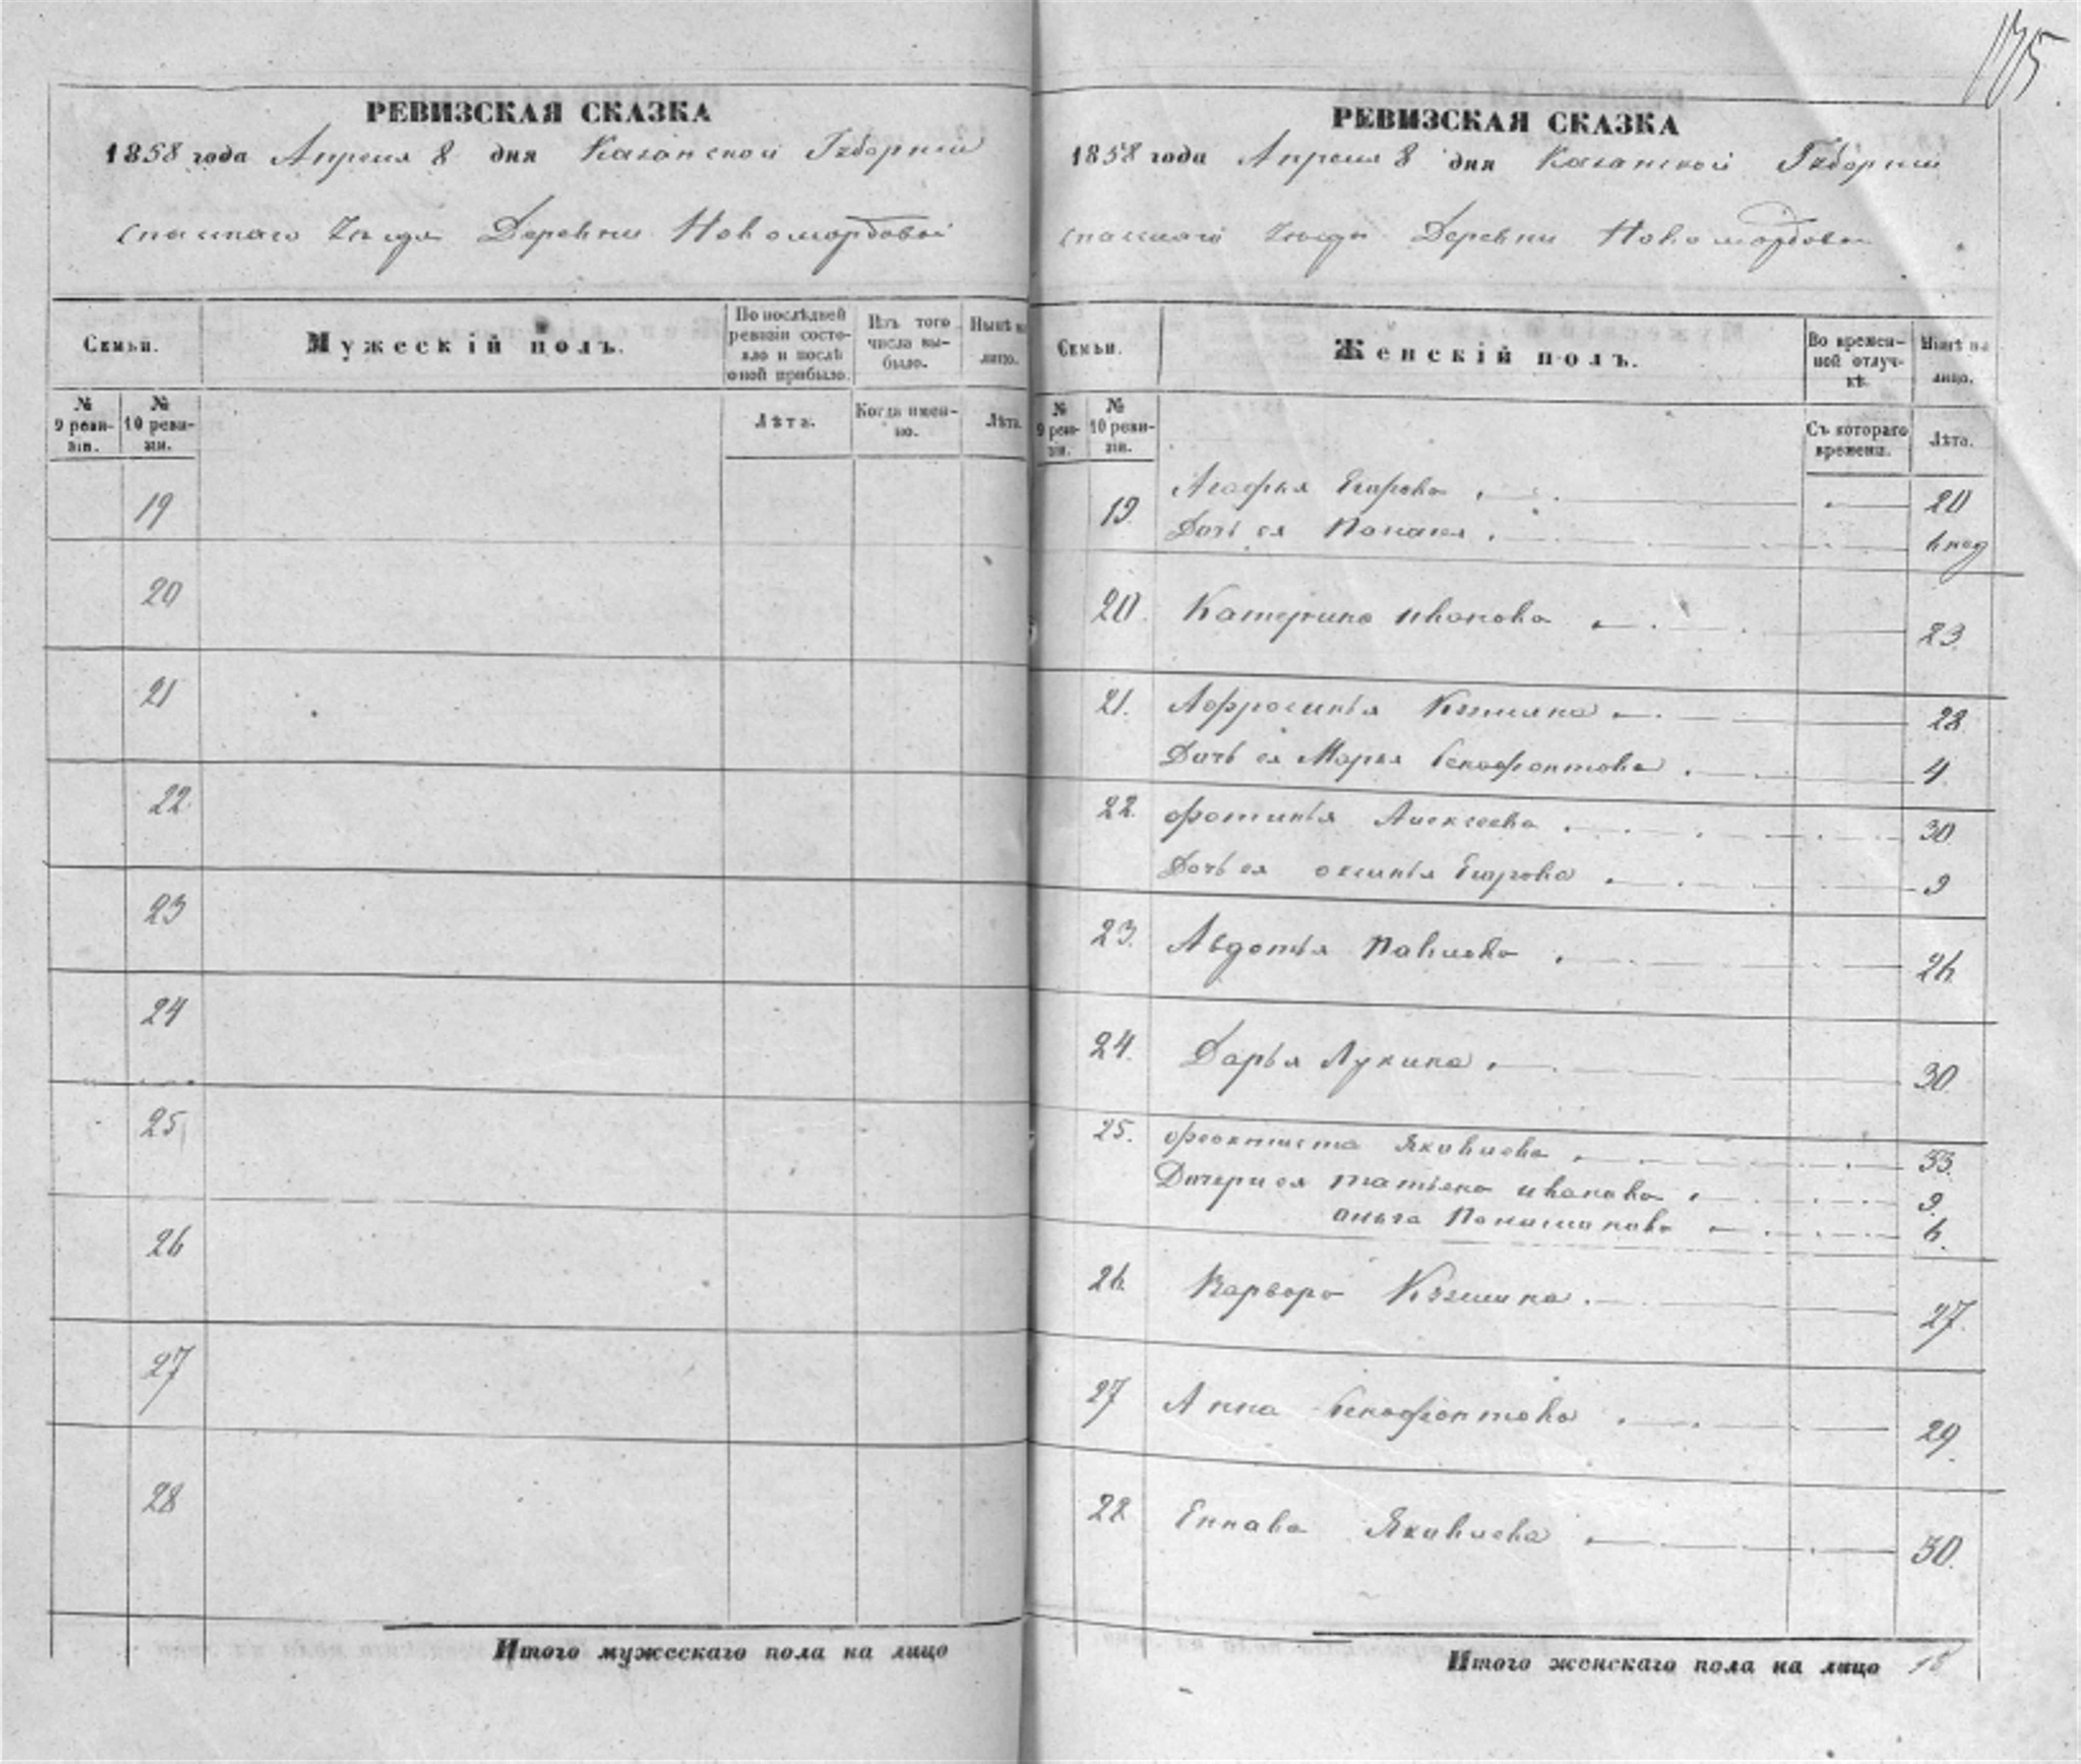 175.
РЕВИЗСКАЯ СКАЗКА
1858 года Апреля 8 дня Казанской Губернии
Спаскаго Уезда Деревни Новомордовой
Семьи.
Мужескій полъ.
По послѣдней ревизіи состояло и послѣ оной прибыло.
Изъ того числа выбыло.
Нынѣ на лицо.
№ 9 ревизіи.
№ 10 ревизіи.
Лѣта.
Когда именно.
Лѣта.
19
20
21
22
23
24
25
26
27
28
Итого мужескаго пола на лицо
РЕВИЗСКАЯ СКАЗКА
1858 года Апреля 8 дня Казанской Губернии
Спаскаго Уезда Деревни Новомордовой
Семьи.
Женскій полъ.
Во временной отлучкѣ.
Нынѣ на лицо.
№ 9 ревизіи.
№ 10 ревизіи.
Съ котораго времени.
Лѣта.
19. Агафья Егорова 20
Дочь ея
20. Катерина Иванова 23
21. Афросинья Кузмина 28
Дочь ея Марья Ксенофонтова 4
22. Фотинья Алексеева 30
Дочь ея Оксинья Егорова 9
23. Авдотья Павлова 26
24. Дарья Лукина 30
25. Феоктиста Яковлева 33.
Дочери ея Татьяна Иванова 9
Ольга 6.
26. Варвара Кузмина 27
27 Анна Ксенофонтова 29
28 Яковлева 30
Итого женскаго пола на лицо 15